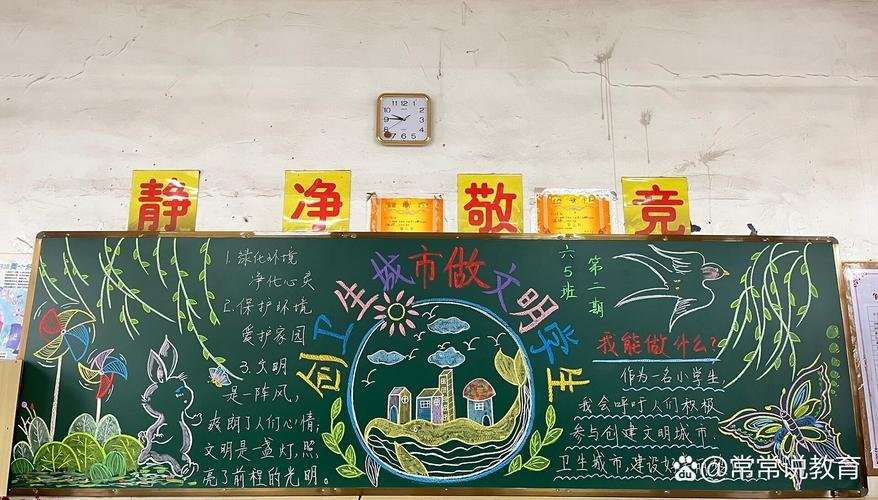 静 净 敬 竞
创卫生城市做文明学生
六5班
第二期
1.绿化环境
净化心灵
2.保护环境
爱护家园
3.文明
是一阵风,
爽朗了人们心情;
文明是一盏灯,照
亮了前程的光明。
我能做什么?
作为一名小学生,
我会呼吁人们积极
参与创建文明城市.
卫生城市,建设好
@常常说教育